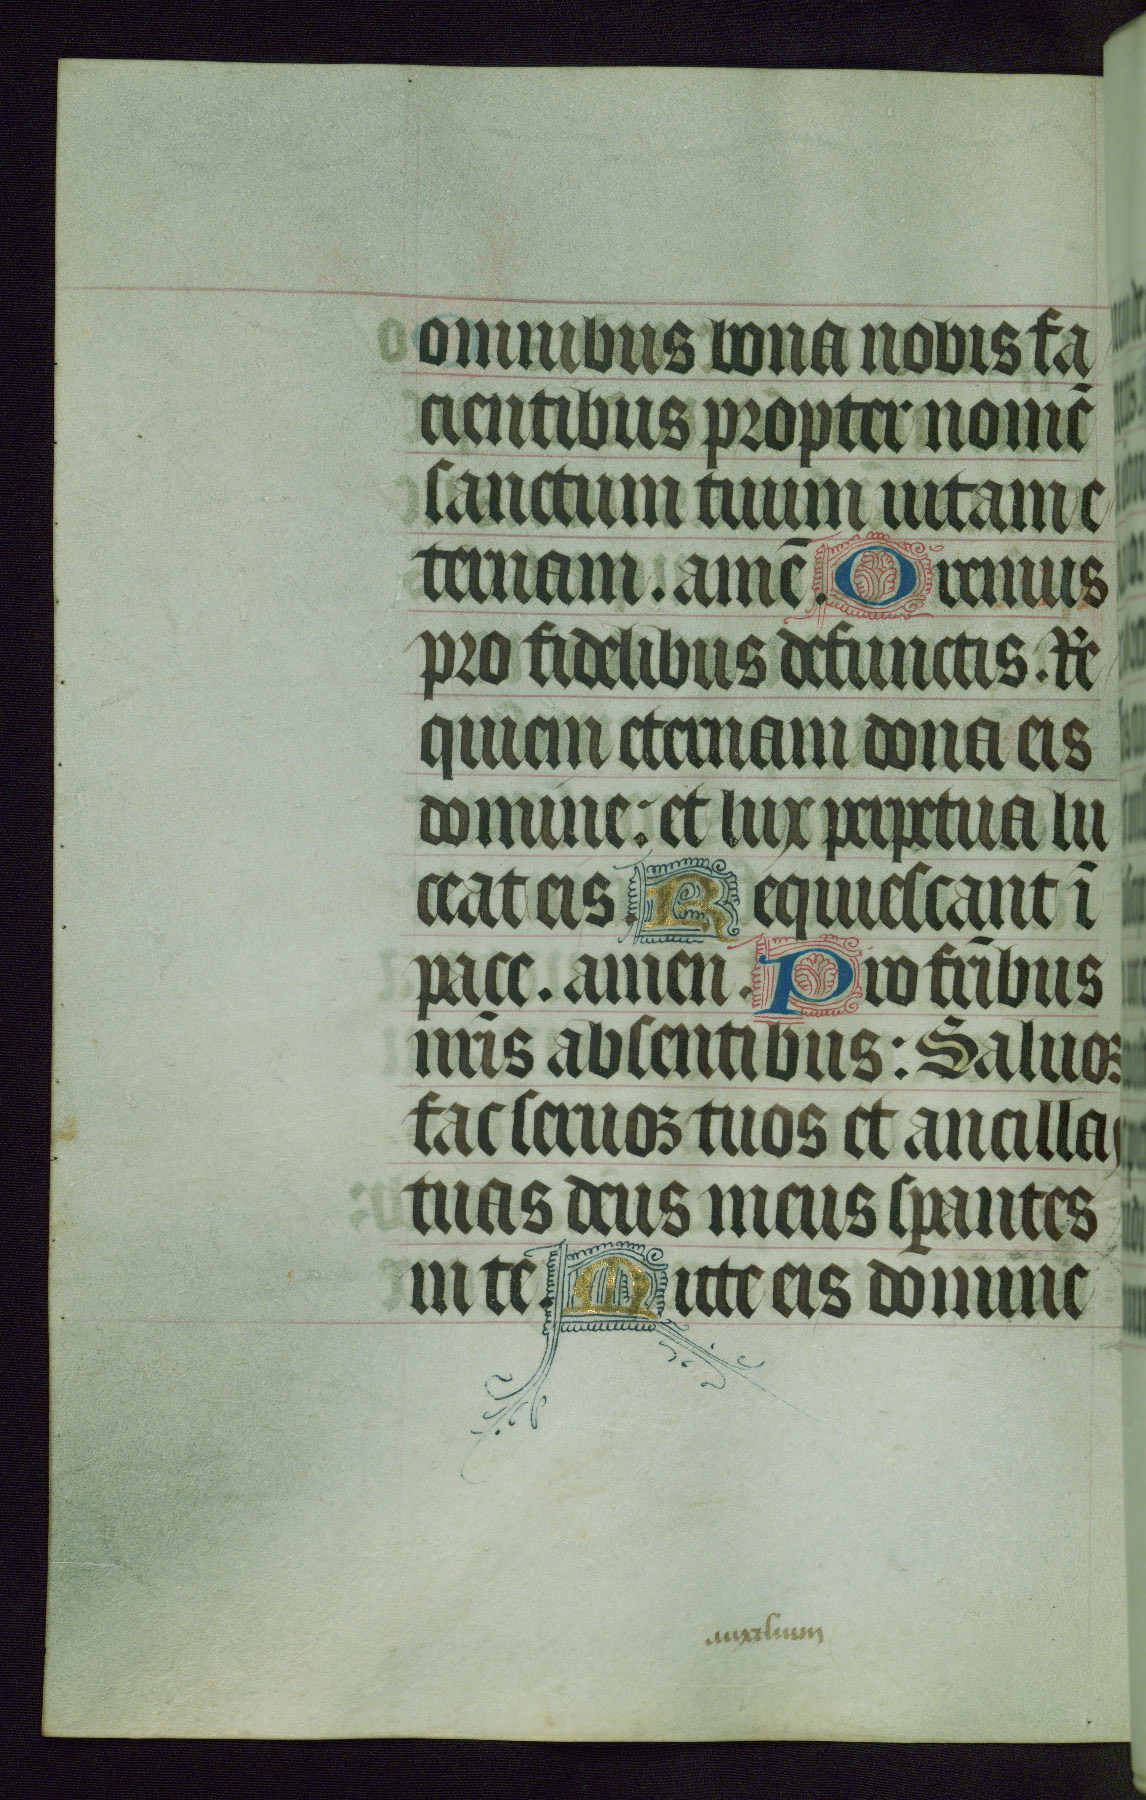 omnibus bona nobis fa
cientibus propter nomē
sanctum tuum uitam e
ternam. amē. Oremus
pro fidelibus defunctis. Re
quiem eternam dona eis
domine: et lux perpetua lu
ceat eis. Requiescant ī
pace. amen. Pro fr̄ibus
nr̄is absentibus: Saluos
fac seruos tuos et ancillas
tuas deus meus sꝑantes
in te. Mitte eis domine
auxilium